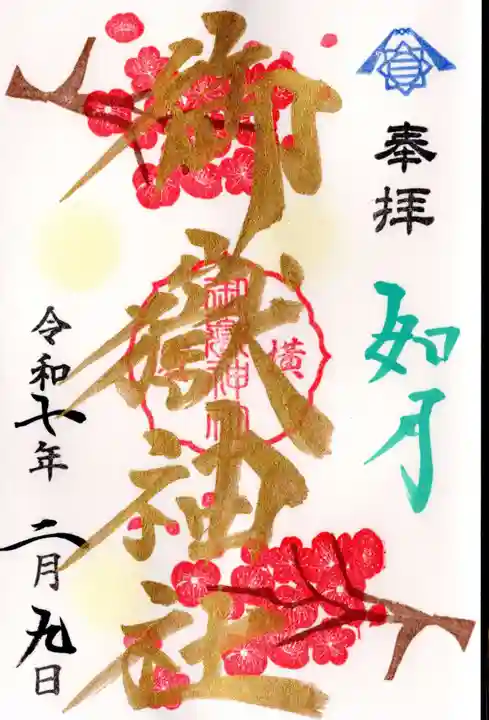 奉拝
如月
御嶽神社
御嶽神社
横
令和七年
二月九日